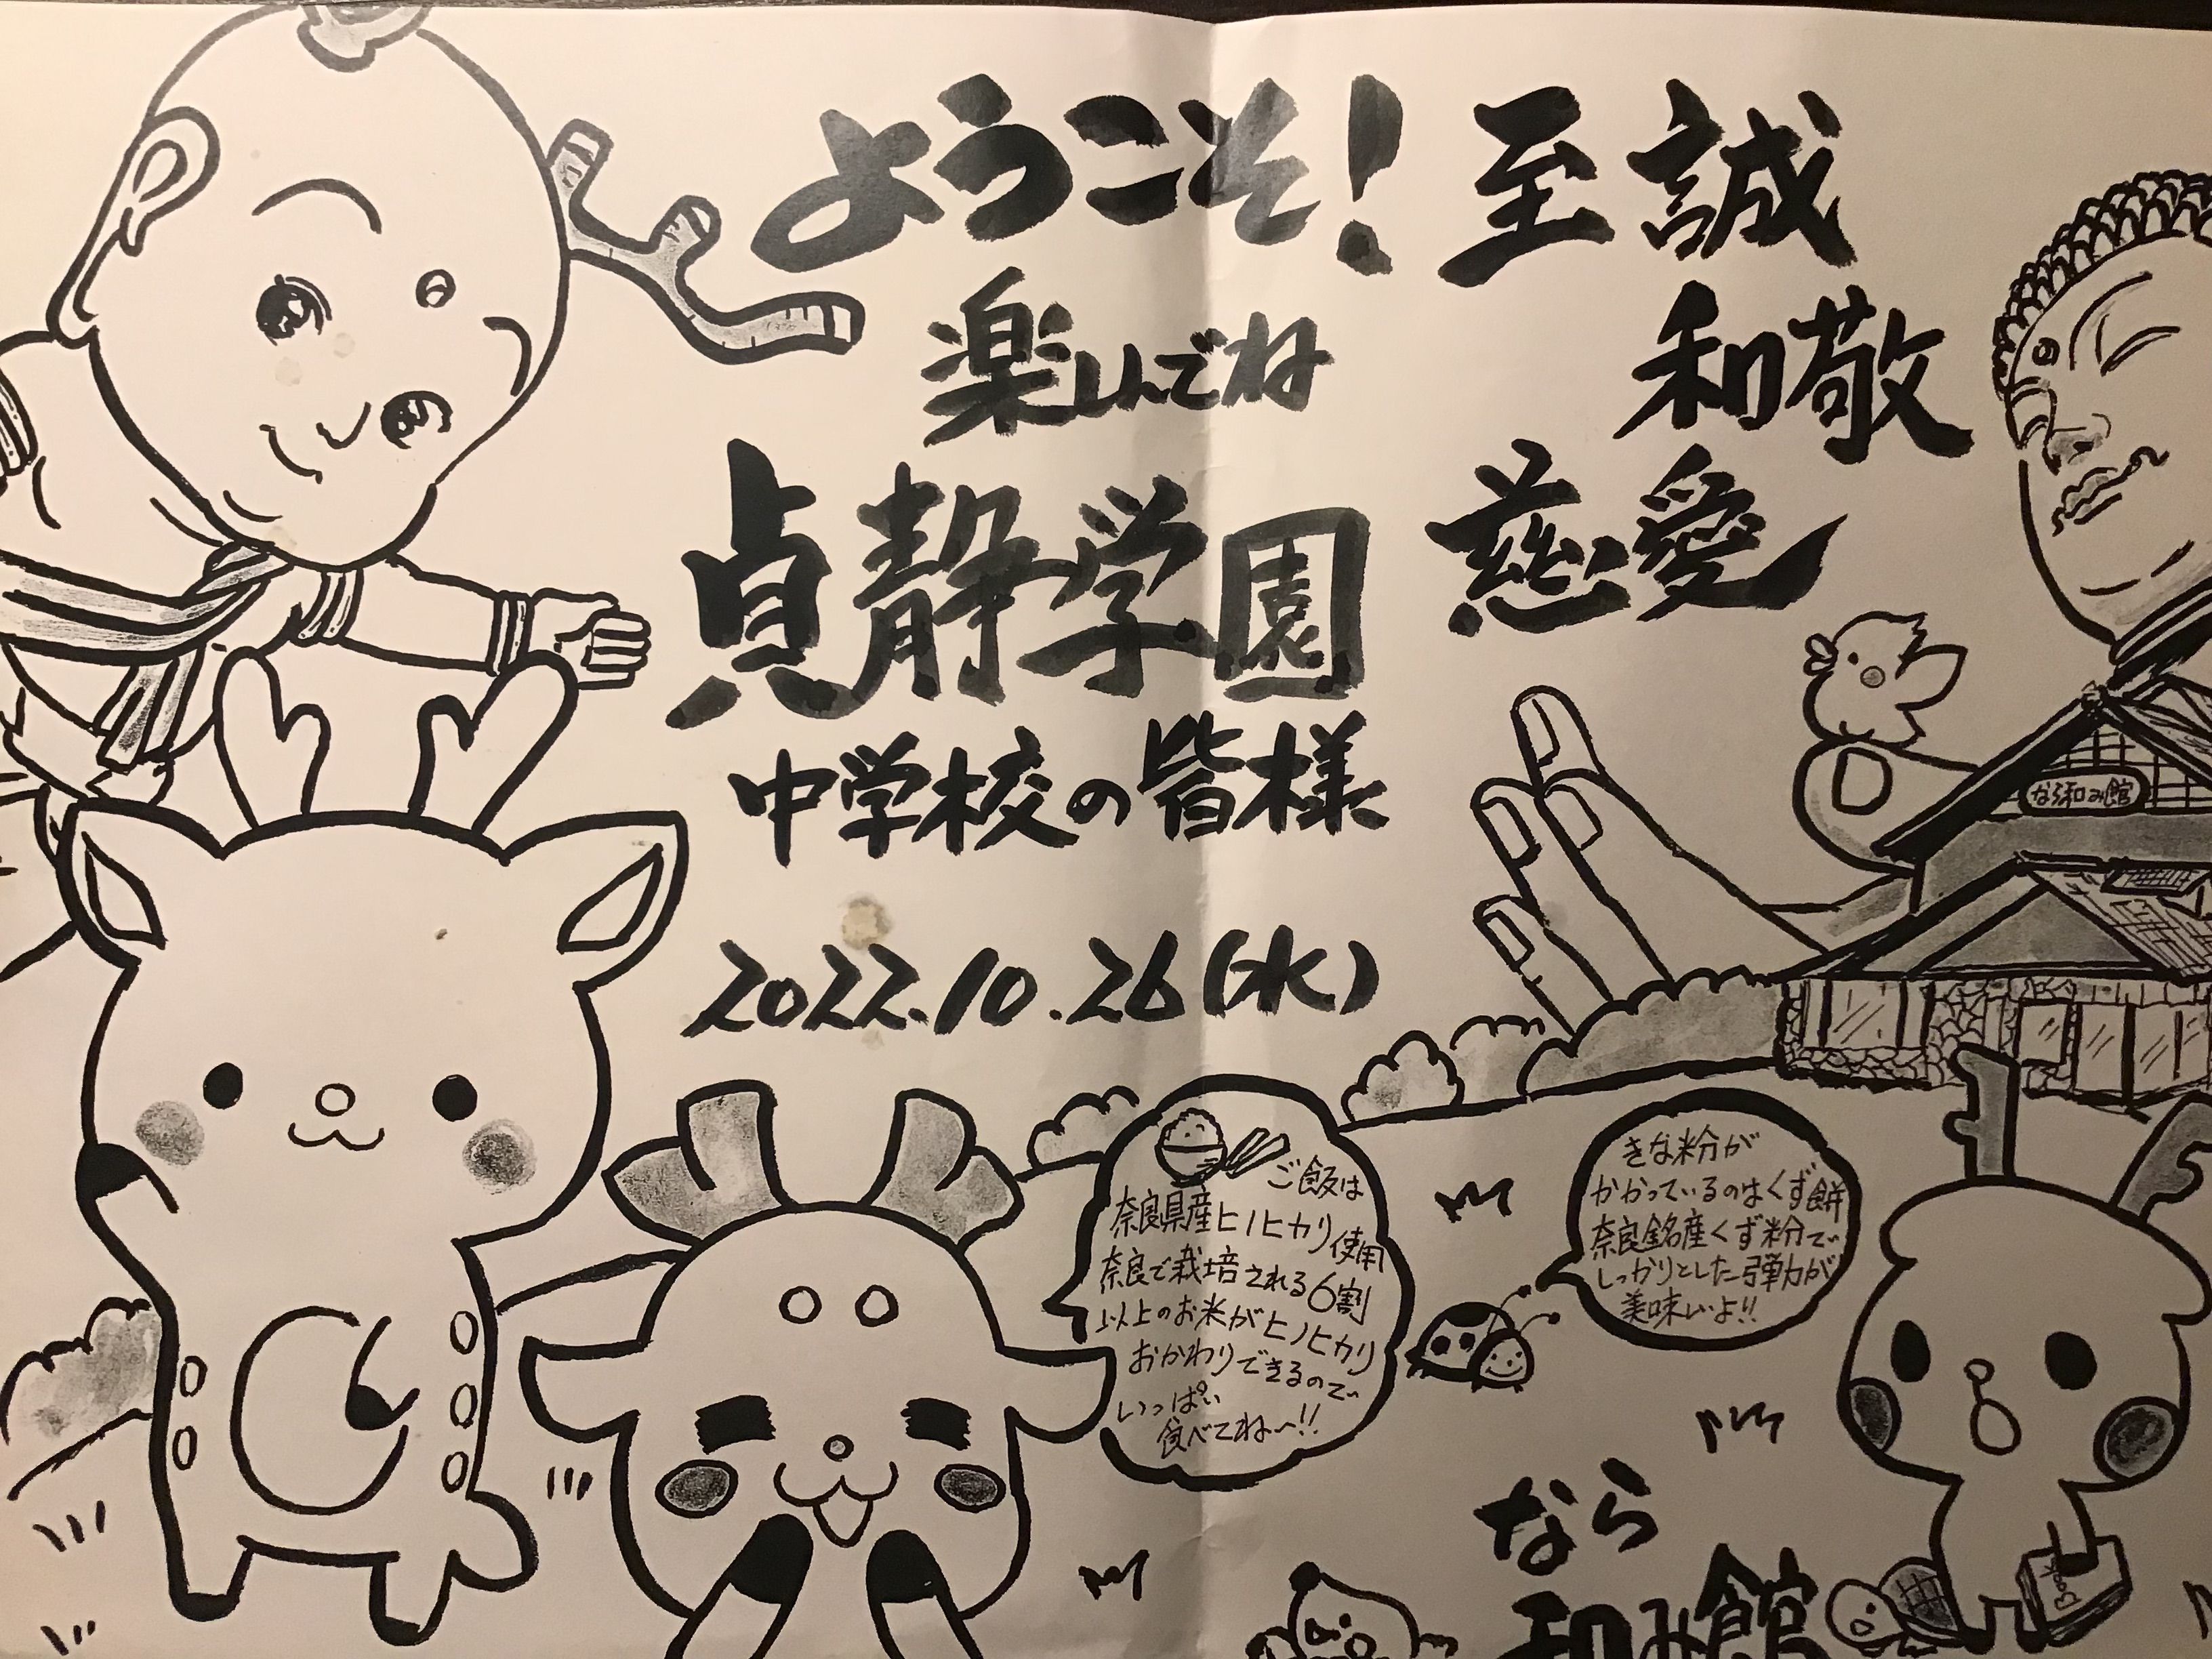 ようこそ!
楽しんでね
貞静学園
中学校の皆様
2022.10.26(水)
至誠
和敬
慈愛
なら和み館
ご飯は
奈良県産ヒノヒカリ使用
奈良で栽培される6割
以上のお米がヒノヒカリ
おかわりできるので
いっぱい
食べてね〜!!
きな粉が
かかっているのはくず餅
奈良銘産くず粉で
しっかりとした弾力が
美味しいよ!!
なら
和み館
Book